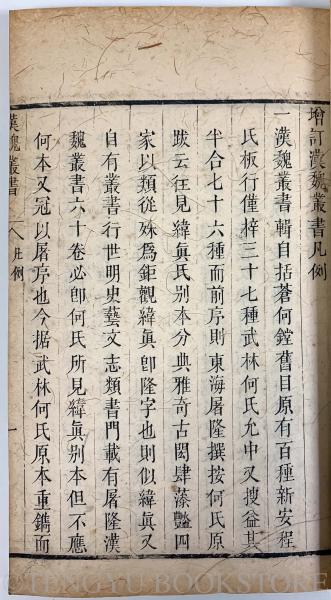 增訂漢魏叢書凡例
一漢魏叢書輯自括蒼何鏜舊目原有百種新安程
氏板行僅梓三十七種武林何氏允中又搜益其
半合七十六種而前序則東海屠隆撰按何氏原
跋云往見緯真氏别本分典雅奇古閎肆藻豔四
家以類從殊爲鉅觀緯真卽隆字也則似緯真又
自有叢書行世明史藝文志類書門載有屠隆漢
魏叢書六十卷必卽何氏所見緯真别本但不應
何本又冠以屠序也今据武林何氏原本重鐫而
漢魏叢書 凡例 一
©TENGYU BOOKSTORE